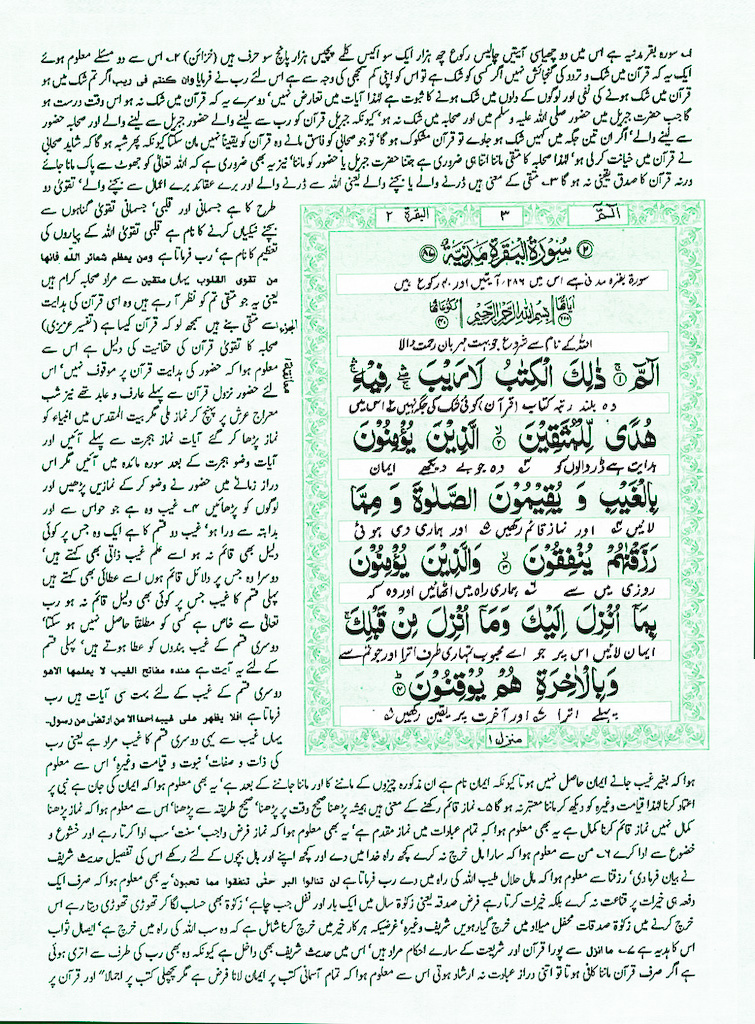 ۱۔ سورہ بقر مدنیہ ہے اس میں دو چھیاسی آیتیں چالیس رکوع چھ ہزار ایک سو اکیس کلمے پچیس ہزار پانچ سو حرف ہیں (خزائن) ۲۔ اس سے دو مسئلے معلوم ہوئے
ایک یہ کہ قرآن میں شک و تردد کی گنجائش نہیں اگر کسی کو شک ہے تو اس کو اپنی کم سمجھی کی وجہ سے ہے اس لئے رب نے فرمایا وان کنتم فی ریب اگر تم شک میں ہو
قرآن میں شک ہونے کی نفی اور لوگوں کے دلوں میں شک ہونے کا ثبوت ہے لہٰذا آیات میں تعارض نہیں' دوسرے یہ کہ قرآن میں شک نہ ہو اس وقت درست ہو
گا جب حضرت جبریل میں حضور صلی اللہ علیہ وسلم میں اور صحابہ میں شک نہ ہو' کیونکہ جبریل قرآن کو رب سے لینے والے حضور جبریل سے لینے والے اور صحابہ حضور
سے لینے والے' اگر ان تین جگہ میں کہیں شک ہو جاوے تو قرآن مشکوک ہو گا' تو جو صحابی کو فاسق مانے وہ قرآن کو یقینا نہیں مان سکتا کیونکہ پھر شبہ ہو گا کہ شاید صحابی
نے قرآن میں خیانت کر لی ہو' لہٰذا صحابہ کا متقی ماننا اتنا ہی ضروری ہے جتنا حضرت جبریل یا حضور کو ماننا' نیز یہ بھی ضروری ہے کہ اللہ تعالیٰ کو جھوٹ سے پاک مانا جائے
ورنہ قرآن کا صدق یقینی نہ ہو گا ۳۔ متقی کے معنی ہیں ڈرنے والے یا بچنے والے یعنی اللہ سے ڈرنے والے اور برے عقائد برے اعمال سے بچنے والے' تقویٰ دو
طرح کا ہے جسمانی اور قلبی' جسمانی تقویٰ گناہوں سے
بچنے نیکیاں کرنے کا نام ہے قلبی تقویٰ اللہ کے پیاروں کی
تعظیم کا نام ہے' رب فرماتا ہے ومن یعظم شعائر اللہ فانھا
من تقوی القلوب یہاں متقین سے مراد صحابہ کرام ہیں
یعنی یہ جو متقی تم کو نظر آ رہے ہیں وہ اسی قرآن کی ہدایت
سے متقی بنے ہیں سمجھ لو کہ قرآن کیسا ہے (تفسیر عزیزی)
صحابہ کا تقویٰ قرآن کی حقانیت کی دلیل ہے اس سے
معلوم ہوا کہ حضور کی ہدایت قرآن پر موقوف نہیں' اس
لئے حضور نزول قرآن سے پہلے عارف و عابد تھے نیز شب
معراج عرش پر پہنچ کر نماز ملی مگر بیت المقدس میں انبیاء کو
نماز پڑھا کر گئے آیات نماز ہجرت سے پہلے آئیں اور
آیات وضو ہجرت کے بعد سورہ مائدہ میں آئیں مگر اس
دراز زمانے میں حضور نے وضو کر کے نمازیں پڑھیں اور
لوگوں کو پڑھائیں ۴۔ غیب وہ ہے جو حواس سے اور
بداہتہ سے ورا ہو' غیب دو قسم کا ہے ایک وہ جس پر کوئی
دلیل بھی قائم نہ ہو اسے علم غیب ذاتی بھی کہتے ہیں'
دوسرا وہ جس پر دلائل قائم ہوں اسے عطائی بھی کہتے ہیں
پہلی قسم کا غیب جس پر کوئی بھی دلیل قائم نہ ہو رب
تعالیٰ سے خاص ہے کسی کو مطلقا حاصل نہیں ہو سکتا'
دوسری قسم کے غیب بندوں کو عطا ہوتے ہیں' پہلی قسم
کے لئے یہ آیت ہے عندہ مفاتح الغیب لا یعلمھا الاھو
دوسری قسم کے غیب کے لئے بہت سی آیات ہیں رب
فرماتا ہے افلا یظھر علی غیبہ احدا الا من ارتضی من رسول۔
یہاں غیب سے یہی دوسری قسم کا غیب مراد ہے یعنی رب
کی ذات و صفات' نبوت و قیامت وغیرہ' اس سے معلوم
الٓمّٓ ۳ البقرۃ ۲
سُوْرَۃُ الْبَقَرَۃِ مَدَنِیَّۃٌ
سورۃ بقرہ مدنی ہے اس میں ۲۸۶ آیتیں اور ۴۰ رکوع ہیں
بِسْمِ اللّٰہِ الرَّحْمٰنِ الرَّحِیْمِ
اللہ کے نام سے شروع جو بہت مہربان رحمت والا
الٓمّٓ ۱ ذٰلِكَ الْكِتٰبُ لَا رَیْبَ فِیْهِ
وہ بلند رتبہ کتاب (قرآن) کوئی شک کی جگہ نہیں اس میں
هُدًى لِّلْمُتَّقِیْنَ ۲ الَّذِیْنَ یُؤْمِنُوْنَ
ہدایت ہے ڈر والوں کو وہ جو بے دیکھے ایمان
بِالْغَیْبِ وَ یُقِیْمُوْنَ الصَّلٰوةَ وَ مِمَّا
لائیں اور نماز قائم رکھیں اور ہماری دی ہوئی
رَزَقْنٰهُمْ یُنْفِقُوْنَ ۳ وَالَّذِیْنَ یُؤْمِنُوْنَ
روزی میں سے ہماری راہ میں اٹھائیں اور وہ کہ
بِمَاۤ اُنْزِلَ اِلَیْكَ وَمَاۤ اُنْزِلَ مِنْ قَبْلِكَ
ایمان لائیں اس پر جو اے محبوب تمہاری طرف اترا اور جو تم سے
وَبِالْاٰخِرَةِ هُمْ یُوْقِنُوْنَ ۴
پہلے اترا اور آخرت پر یقین رکھیں
منزل۱
ہوا کہ بغیر غیب جانے ایمان حاصل نہیں ہوتا کیونکہ ایمان نام ہے ان مذکورہ چیزوں کے ماننے کا اور ماننا جاننے کے بعد ہے' یہ بھی معلوم ہوا کہ ایمان کی جان ہے نبی پر
اعتماد کرنا لہٰذا قیامت وغیرہ کو دیکھ کر ماننا معتبر نہ ہو گا ۵۔ نماز قائم رکھنے کے معنی ہیں ہمیشہ پڑھنا صحیح وقت پر پڑھنا' صحیح طریقہ سے پڑھنا' اس سے معلوم ہوا کہ نماز پڑھنا
کمال نہیں نماز قائم کرنا کمال ہے یہ بھی معلوم ہوا کہ تمام عبادات میں نماز مقدم ہے' یہ بھی معلوم ہوا کہ نماز فرض واجب' سنت' سب ادا کرتا رہے اور خشوع و
خضوع سے ادا کرے ۶۔ من سے معلوم ہوا کہ سارا مال خرچ نہ کرے کچھ راہ خدا میں دے اور کچھ اپنے اور بال بچوں کے لئے رکھے اس کی تفصیل حدیث شریف
نے بیان فرما دی' رزقنا سے معلوم ہوا کہ مال حلال طیب اللہ کی راہ میں دے رب فرماتا ہے لن تنالوا البر حتی تنفقوا مما تحبون' یہ بھی معلوم ہوا کہ صرف ایک
دفعہ ہی خیرات پر قناعت نہ کرے بلکہ خیرات کرتا رہے فرض صدقہ یعنی زکوٰۃ سال میں ایک بار اور نفل جب چاہے' زکوٰۃ بھی حساب لگا کر تھوڑی تھوڑی دیتا رہے اس
خرچ کرنے میں زکوٰۃ صدقات محفل میلاد میں خرچ گیارہویں شریف وغیرہ' غرضیکہ ہر کار خیر میں خرچ کرنا شامل ہے کہ وہ سب اللہ کی راہ میں خرچ ہے' ایصال ثواب
اس کا ہدیہ ہے ۷۔ ما انزل سے پورا قرآن اور شریعت کے سارے احکام مراد ہیں' اس میں حدیث شریف بھی داخل ہے کیونکہ وہ بھی رب کی طرف سے اتری ہوئی
ہے اگر صرف قرآن ماننا کافی ہوتا تو اتنی دراز عبادت نہ ارشاد ہوتی اس سے معلوم ہوا کہ تمام آسمانی کتب پر ایمان لانا فرض ہے مگر پچھلی کتب پر اجمالا" اور قرآن پر